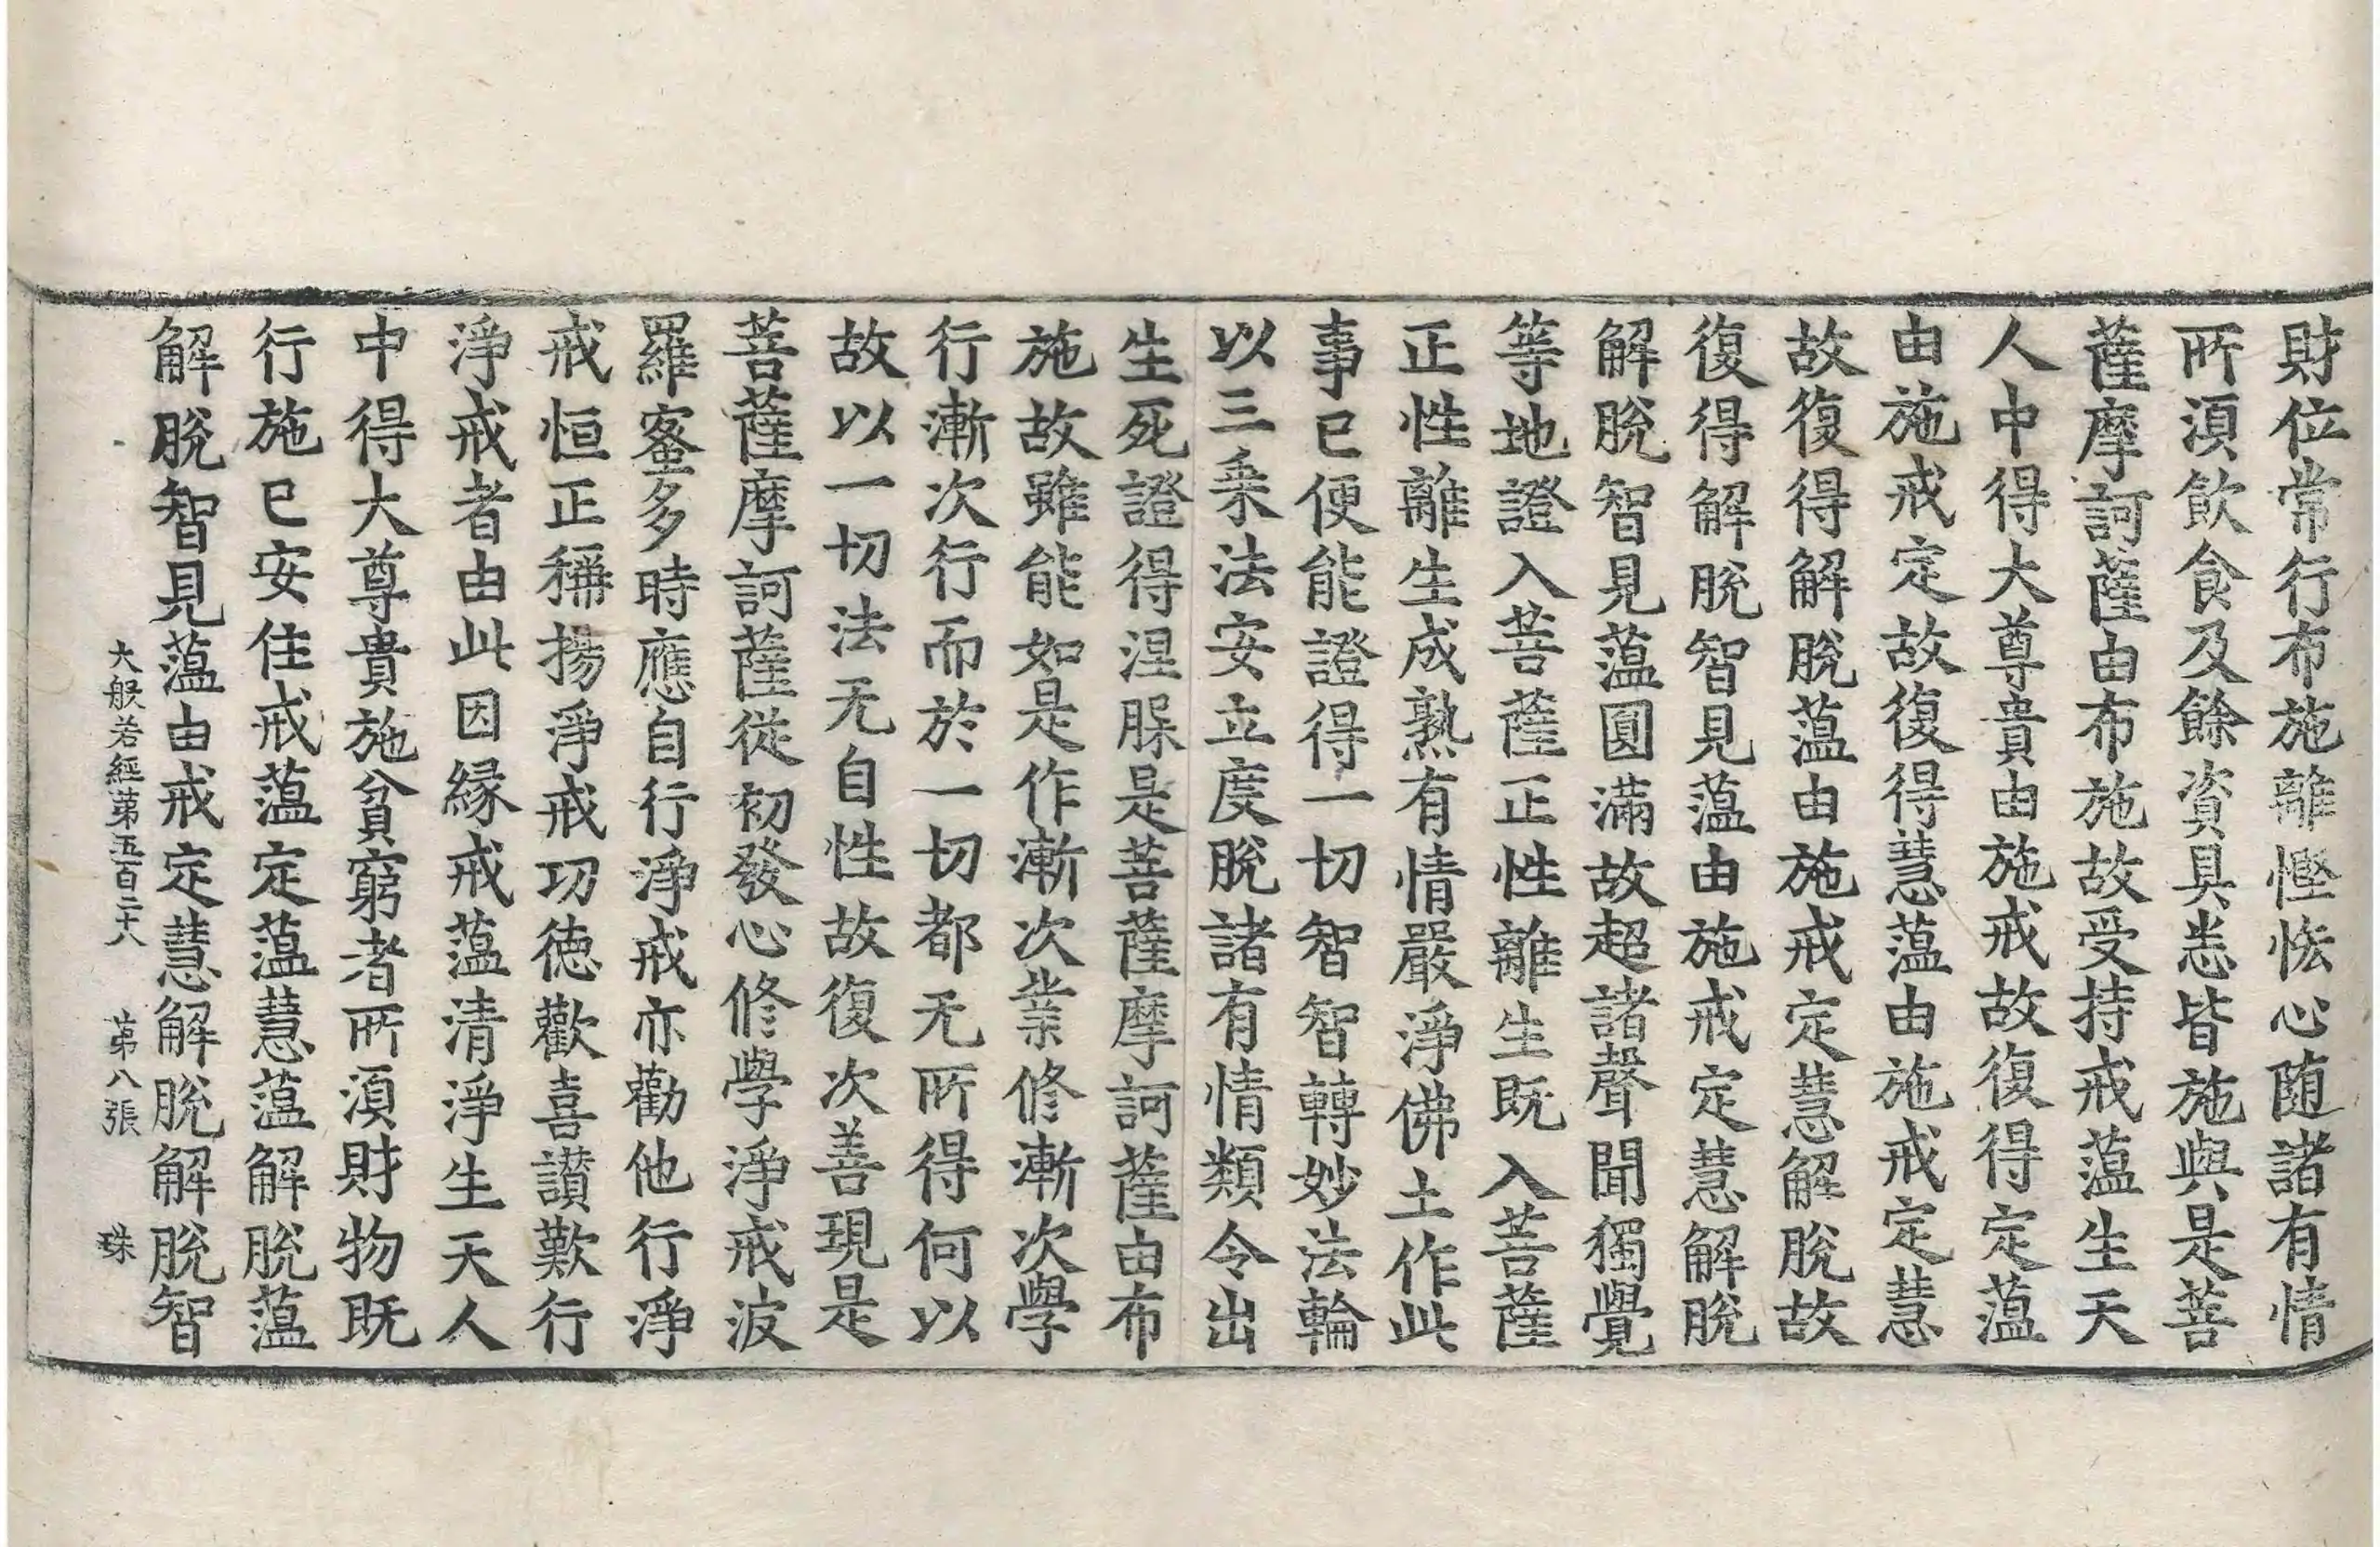 財位常行布施離慳悋心随諸有情
所湏飲食及餘資具悉皆施與是菩
薩摩訶薩由布施故受持戒蕰生天
人中得大尊貴由施戒故復得定蕰
由施戒定故復得慧蕰由施戒定慧
故復得解脫蕰由施戒定慧解脫故
復得解脫智見蕰由施戒定慧解脫
解脫智見蕰圓滿故超諸聲聞獨覺
等地證入菩薩正性離生旣入菩薩
正性離生成熟有情嚴淨佛土作此
事已便能證得一切智智轉妙法輪
以三乗法安立度脫諸有情類令出
生死證得涅槃是菩薩摩訶薩由布
施故雖能如是作漸次業修漸次學
行漸次行而於一切都无所得何以
故以一切法无自性故復次善現是
菩薩摩訶薩從初發心修學淨戒波
羅蜜多時應自行淨戒亦勸他行淨
戒恒正稱揚淨戒功德歡喜讃歎行
淨戒者由此因縁戒蕰清淨生天人
中得大尊貴施貧窮者所湏財物旣
行施已安住戒蕰定蕰慧蕰解脫蕰
解脫智見蕰由戒定慧解脫解脫智
大般若經第五百二十八 第八張 珠